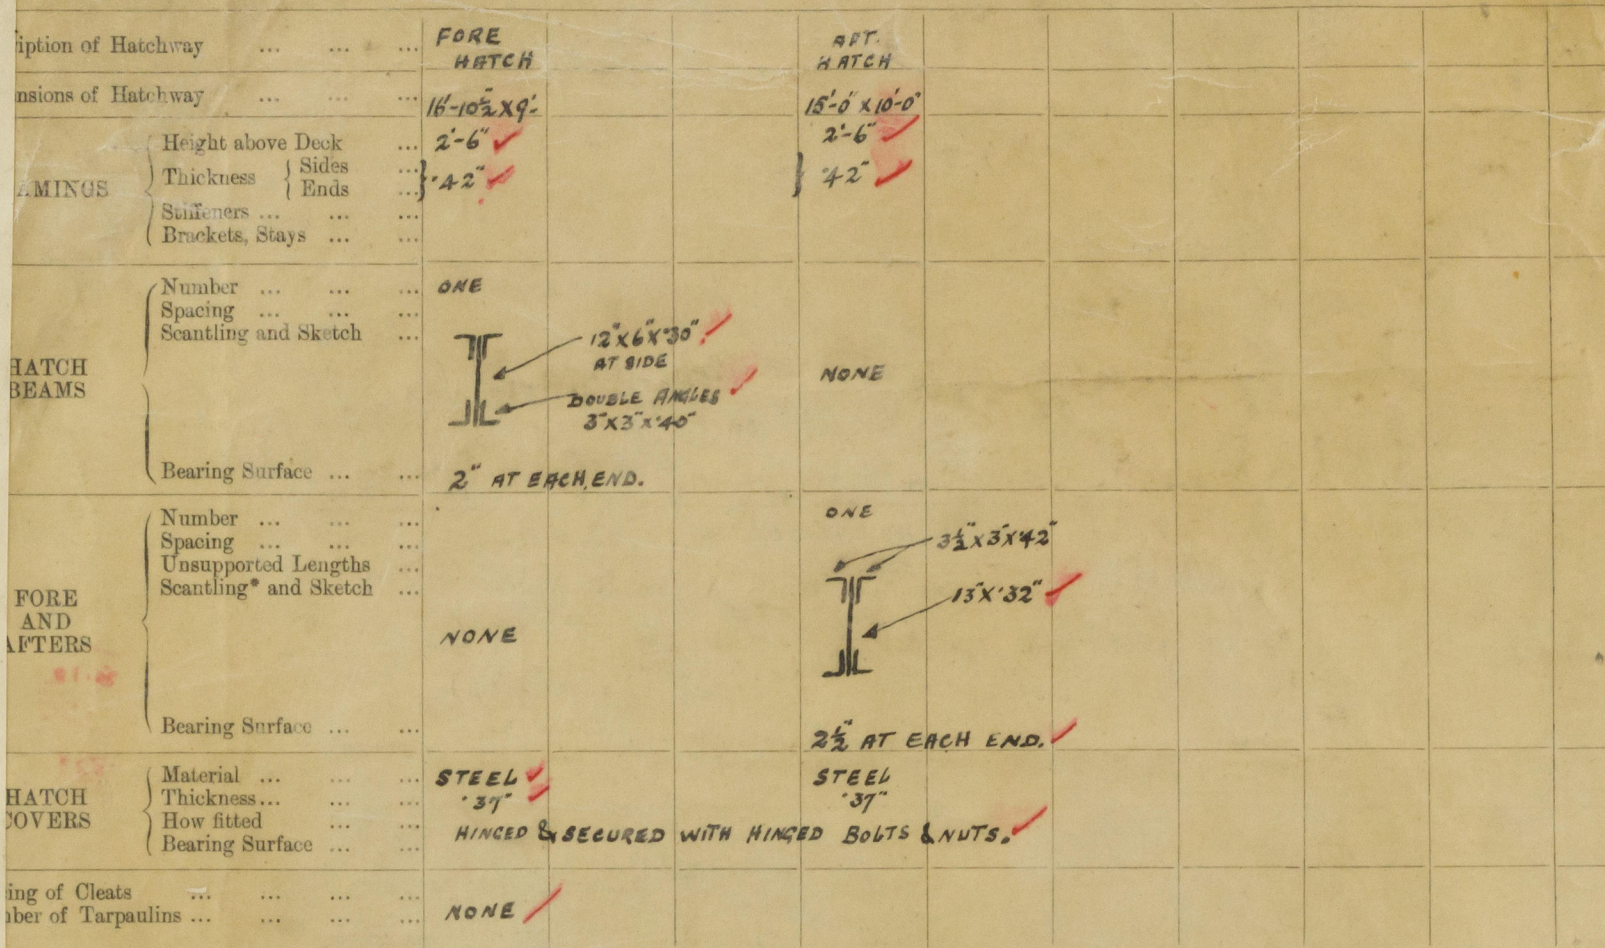 iption of Hatchway ... ... ... FORE HATCH AFT. HATCH
nsions of Hatchway ... ... ... 16'-10½" X 9'- 15'-0" X 10'-0"
AMINGS
Height above Deck ... 2'-6" 2'-6"
Thickness { Sides ... } ·42" } ·42"
{ Ends ...
Stiffeners ... ... ...
Brackets, Stays ... ...
HATCH BEAMS
Number ... ... ... ONE
Spacing ... ... ...
Scantling and Sketch ... 12" X 6" X ·30" AT SIDE
DOUBLE ANGLES 3" X 3" X ·40"
NONE
Bearing Surface ... ... 2" AT EACH END.
FORE AND AFTERS
Number ... ... ... ONE
Spacing ... ... ...
Unsupported Lengths ...
Scantling* and Sketch ... NONE
3½" X 3" X ·42"
13" X ·32"
Bearing Surface ... ... 2½" AT EACH END.
HATCH COVERS
Material ... ... ... STEEL STEEL
Thickness ... ... ... ·37" ·37"
How fitted ... ... HINGED & SECURED WITH HINGED BOLTS & NUTS.
Bearing Surface ... ...
ing of Cleats ... ... ... ...
ber of Tarpaulins ... ... ... ... NONE